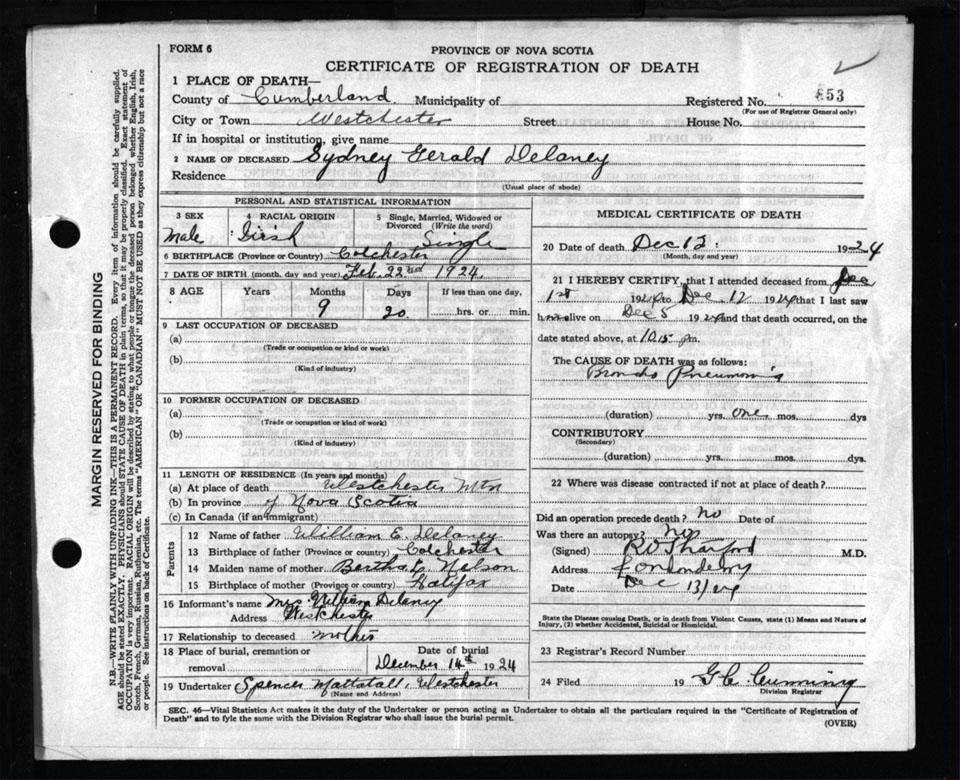 FORM 6
PROVINCE OF NOVA SCOTIA
CERTIFICATE OF REGISTRATION OF DEATH
1 PLACE OF DEATH—
County of Cumberland. Municipality of
Registered No. 853
(For use of Registrar General only)
City or Town Westchester Street House No.
If in hospital or institution, give name
2 NAME OF DECEASED Sydney Gerald Delaney
Residence
(Usual place of abode)
PERSONAL AND STATISTICAL INFORMATION
3 SEX Male
4 RACIAL ORIGIN Irish
5 Single, Married, Widowed or Divorced (Write the word) Single
6 BIRTHPLACE (Province or Country) Colchester
7 DATE OF BIRTH (month, day and year) Feb. 22nd 1924.
8 AGE Years Months Days If less than one day,
9 20 hrs. or min.
9 LAST OCCUPATION OF DECEASED
(a)
(Trade or occupation or kind or work)
(b)
(Kind of industry)
10 FORMER OCCUPATION OF DECEASED
(a)
(Trade or occupation or kind of work)
(b)
(Kind of industry)
11 LENGTH OF RESIDENCE (In years and months)
(a) At place of death Westchester Mtn
(b) In province of Nova Scotia
(c) In Canada (if an immigrant)
Parents
12 Name of father William E. Delaney
13 Birthplace of father (Province or country) Colchester
14 Maiden name of mother Bertha L. Nelson
15 Birthplace of mother (Province or country) Halifax
16 Informant's name Mrs. William Delaney
Address Westchester
17 Relationship to deceased mother
18 Place of burial, cremation or removal
Date of burial
December 14th 1924
19 Undertaker Spencer Mattatall, Westchester
(Name and Address)
MEDICAL CERTIFICATE OF DEATH
20 Date of death Dec 12. 1924
(Month, day and year)
21 I HEREBY CERTIFY, that I attended deceased from Dec
1st 1924 to Dec 12 1924 that I last saw
h alive on Dec 5 1924 and that death occurred, on
date stated above, at 10.15 pm.
The CAUSE OF DEATH was as follows:
Broncho Pneumonia
(duration) yrs. one mos. dys
CONTRIBUTORY
(Secondary)
(duration) yrs. mos. dys
22 Where was disease contracted if not at place of death?
Did an operation precede death? No Date of
Was there an autopsy? No
(Signed) M.D.
Address Londonderry
Date Dec 13/24
State the Disease causing Death, or in death from Violent Causes, state (1) Means and Nature of
Injury, (2) whether Accidental, Suicidal or Homicidal.
23 Registrar's Record Number
24 Filed 19 G C Cumming
Division Registrar
SEC. 46—Vital Statistics Act makes it the duty of the Undertaker or person acting as Undertaker to obtain all the particulars required in the "Certificate of Registration of
Death"—and to fyle the same with the Division Registrar who shall issue the burial permit.
(OVER)
MARGIN RESERVED FOR BINDING
N.B.—WRITE PLAINLY WITH UNFADING INK—THIS IS A PERMANENT RECORD. Every item of information should be carefully supplied.
AGE should be stated EXACTLY. PHYSICIANS should STATE CAUSE OF DEATH in plain terms, so that it may be properly classified. Exact statement of
OCCUPATION is very important. RACIAL ORIGIN will be described by stating to what people or tongue the deceased person belonged whether English, Irish,
Scotch, French, German, Russian, Ruthenian, etc. The terms "AMERICAN" or "CANADIAN" MUST NOT BE USED as they express citizenship but not a race
or people. See instructions on back of Certificate.